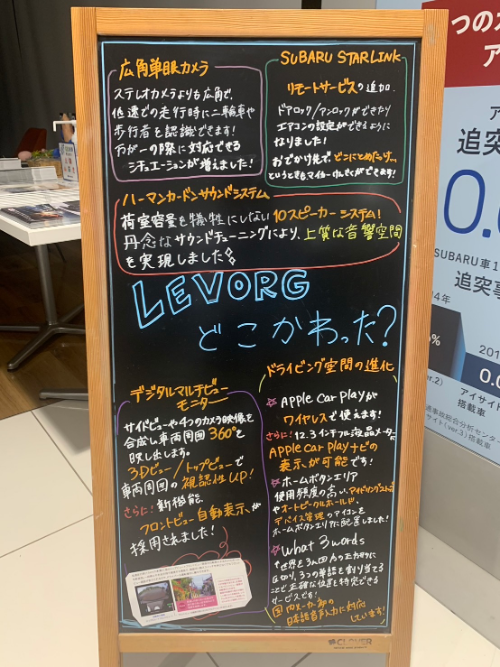 広角単眼カメラ
ステレオカメラよりも広角で、
低速での走行時に二輪車や
歩行者を認識できます!
万が一の際に対応できる
シチュエーションが増えました!
SUBARU STARLINK
リモートサービスの追加
ドアロック/アンロックができたり
エアコンの設定ができるように
なりました!
おでかけ先で、どこにとめたっけ...
というときもマイカーけんさくができます!
ハーマンカードンサウンドシステム
荷室容量も犠牲にしない10スピーカーシステム!
丹念なサウンドチューニングにより、上質な音響空間
を実現しました
LEVORG
どこかわった?
デジタルマルチビュー
モニター
サイドビューや4つのカメラ映像を
合成し車両周囲360°を
映し出します。
3Dビュー/トップビューで
車両周囲の視認性UP!
さらに!新機能、
フロントビュー自動表示が
採用されました!
ドライビング空間の進化
Apple Car Playが
ワイヤレスで使えます!
さらに!12.3インチフル液晶メーターに
Apple Car Playナビの
表示が可能です!
ホームボタンエリア
使用頻度の高い、アイドリングストップ
やオートビークルホールド、
デバイス管理のアイコンを
ホームボタンエリアに配置しました!
what 3 words
世界を3m四方の正方形に
区切り、3つの単語を割り当てる
ことで正確な位置を特定できる
サービスです!
国内メーカー初の
日本語音声入力に対応
しています!
CLOVER
つの
追突
0.
SUBARU 車1
追突事
4年
%
201
0.0
ver.2)
アイサイト
(ver.3)搭載車
搭載車